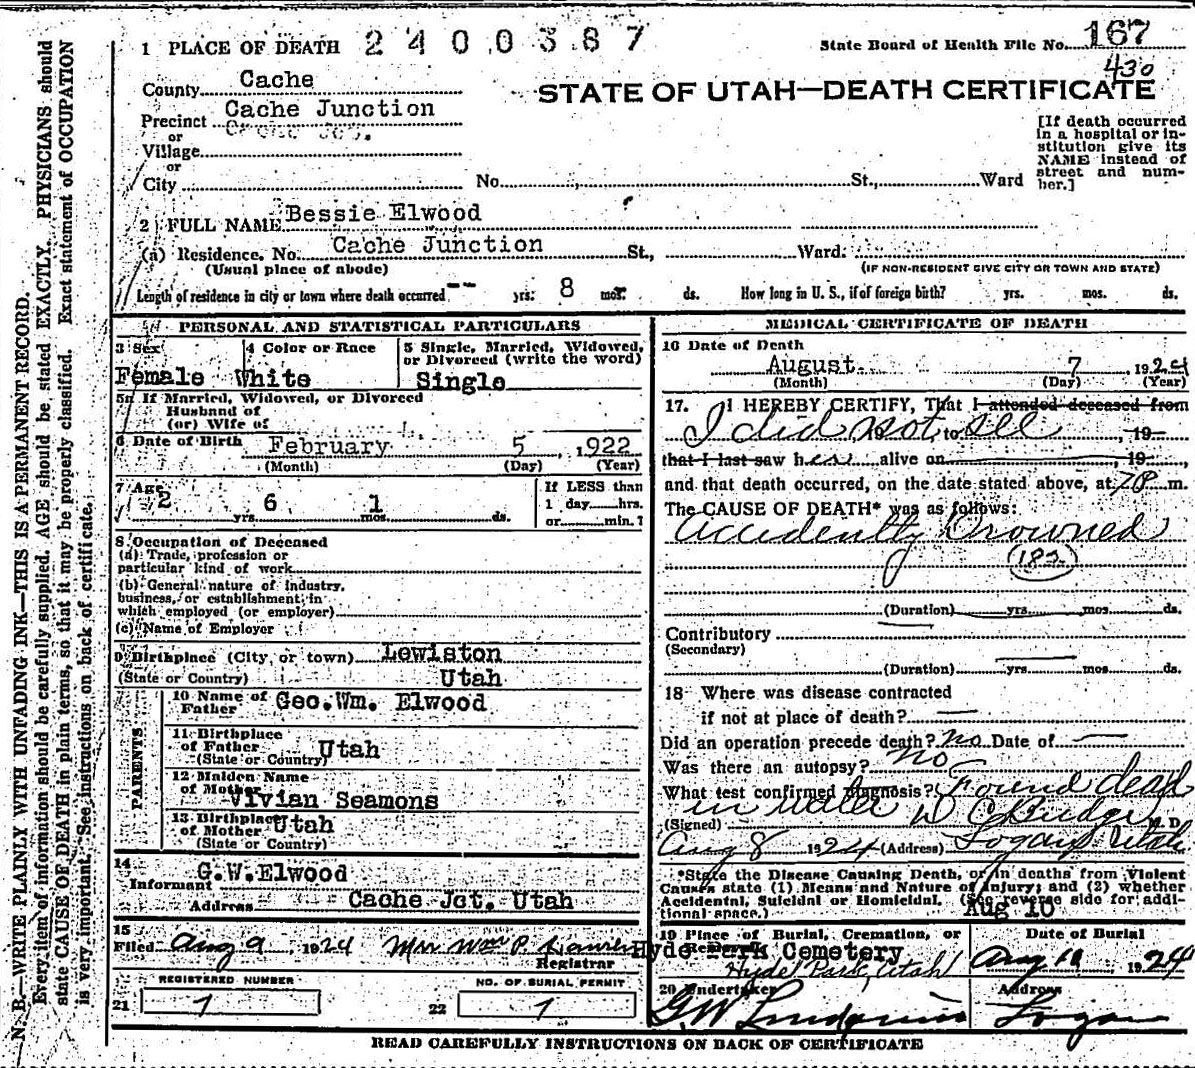 1 PLACE OF DEATH 2400387
State Board of Health File No. 167
430
County Cache
STATE OF UTAH—DEATH CERTIFICATE
Precinct Cache Junction
or Cache Jct.
Village
or
City No. St., Ward
[If death occurred
in a hospital or in-
stitution give its
NAME instead of
street and num-
ber.]
2 FULL NAME Bessie Elwood
(a) Residence. No. Cache Junction St., Ward.
(Usual place of abode) (IF NON-RESIDENT GIVE CITY OR TOWN AND STATE)
Length of residence in city or town where death occurred -- yrs. 8 mos. ds. How long in U. S., if of foreign birth? yrs. mos. ds.
PERSONAL AND STATISTICAL PARTICULARS
3 Sex 4 Color or Race 5 Single, Married, Widowed,
or Divorced (write the word)
Female White Single
5a If Married, Widowed, or Divorced
Husband of
(or) Wife of
6 Date of Birth February 5, 1922
(Month) (Day) (Year)
7 Age 2 6 1
yrs. mos. ds.
If LESS than
1 day hrs.
or min.?
8 Occupation of Deceased
(a) Trade, profession or
particular kind of work
(b) General nature of industry,
business, or establishment in
which employed (or employer)
(c) Name of Employer
9 Birthplace (City, or town) Lewiston
(State or Country) Utah
PARENTS
10 Name of
Father Geo.Wm. Elwood
11 Birthplace
of Father Utah
(State or Country)
12 Maiden Name
of Mother Vivian Seamons
13 Birthplace
of Mother Utah
(State or Country)
14
Informant G.W.Elwood
Address Cache Jct. Utah
15
Filed Aug 9, 1924 Mrs Wm P.
Registrar
REGISTERED NUMBER NO. OF BURIAL PERMIT
21 1 22 1
MEDICAL CERTIFICATE OF DEATH
16 Date of Death
August 7, 1924
(Month) (Day) (Year)
17. I HEREBY CERTIFY, That I attended deceased from
I did not see
19 , to , 19
that I last saw her alive on , 19 ,
and that death occurred, on the date stated above, at 7 P m.
The CAUSE OF DEATH* was as follows:
Accidently Drowned
(182)
(Duration) yrs. mos. ds.
Contributory
(Secondary)
(Duration) yrs. mos. ds.
18 Where was disease contracted
if not at place of death? —
Did an operation precede death? No Date of —
Was there an autopsy? No
What test confirmed diagnosis? Found dead
in water
(Signed) D C Budge M. D.
Aug 8 1924 (Address) Logan Utah
*State the Disease Causing Death, or in deaths from Violent
Causes state (1) Means and Nature of Injury; and (2) whether
Accidental, Suicidal or Homicidal. (See reverse side for addi-
tional space.)
Aug 10
19 Place of Burial, Cremation, or
Removal Date of Burial
Hyde Park Cemetery
Hyde Park, Utah Aug 10, 1924
20 Undertaker Address
G W Logan
READ CAREFULLY INSTRUCTIONS ON BACK OF CERTIFICATE
N. B.—WRITE PLAINLY WITH UNFADING INK—THIS IS A PERMANENT RECORD.
Every item of information should be carefully supplied. AGE should be stated EXACTLY. PHYSICIANS should
state CAUSE OF DEATH in plain terms, so that it may be properly classified. Exact statement of OCCUPATION
is very important. See instructions on back of certificate.